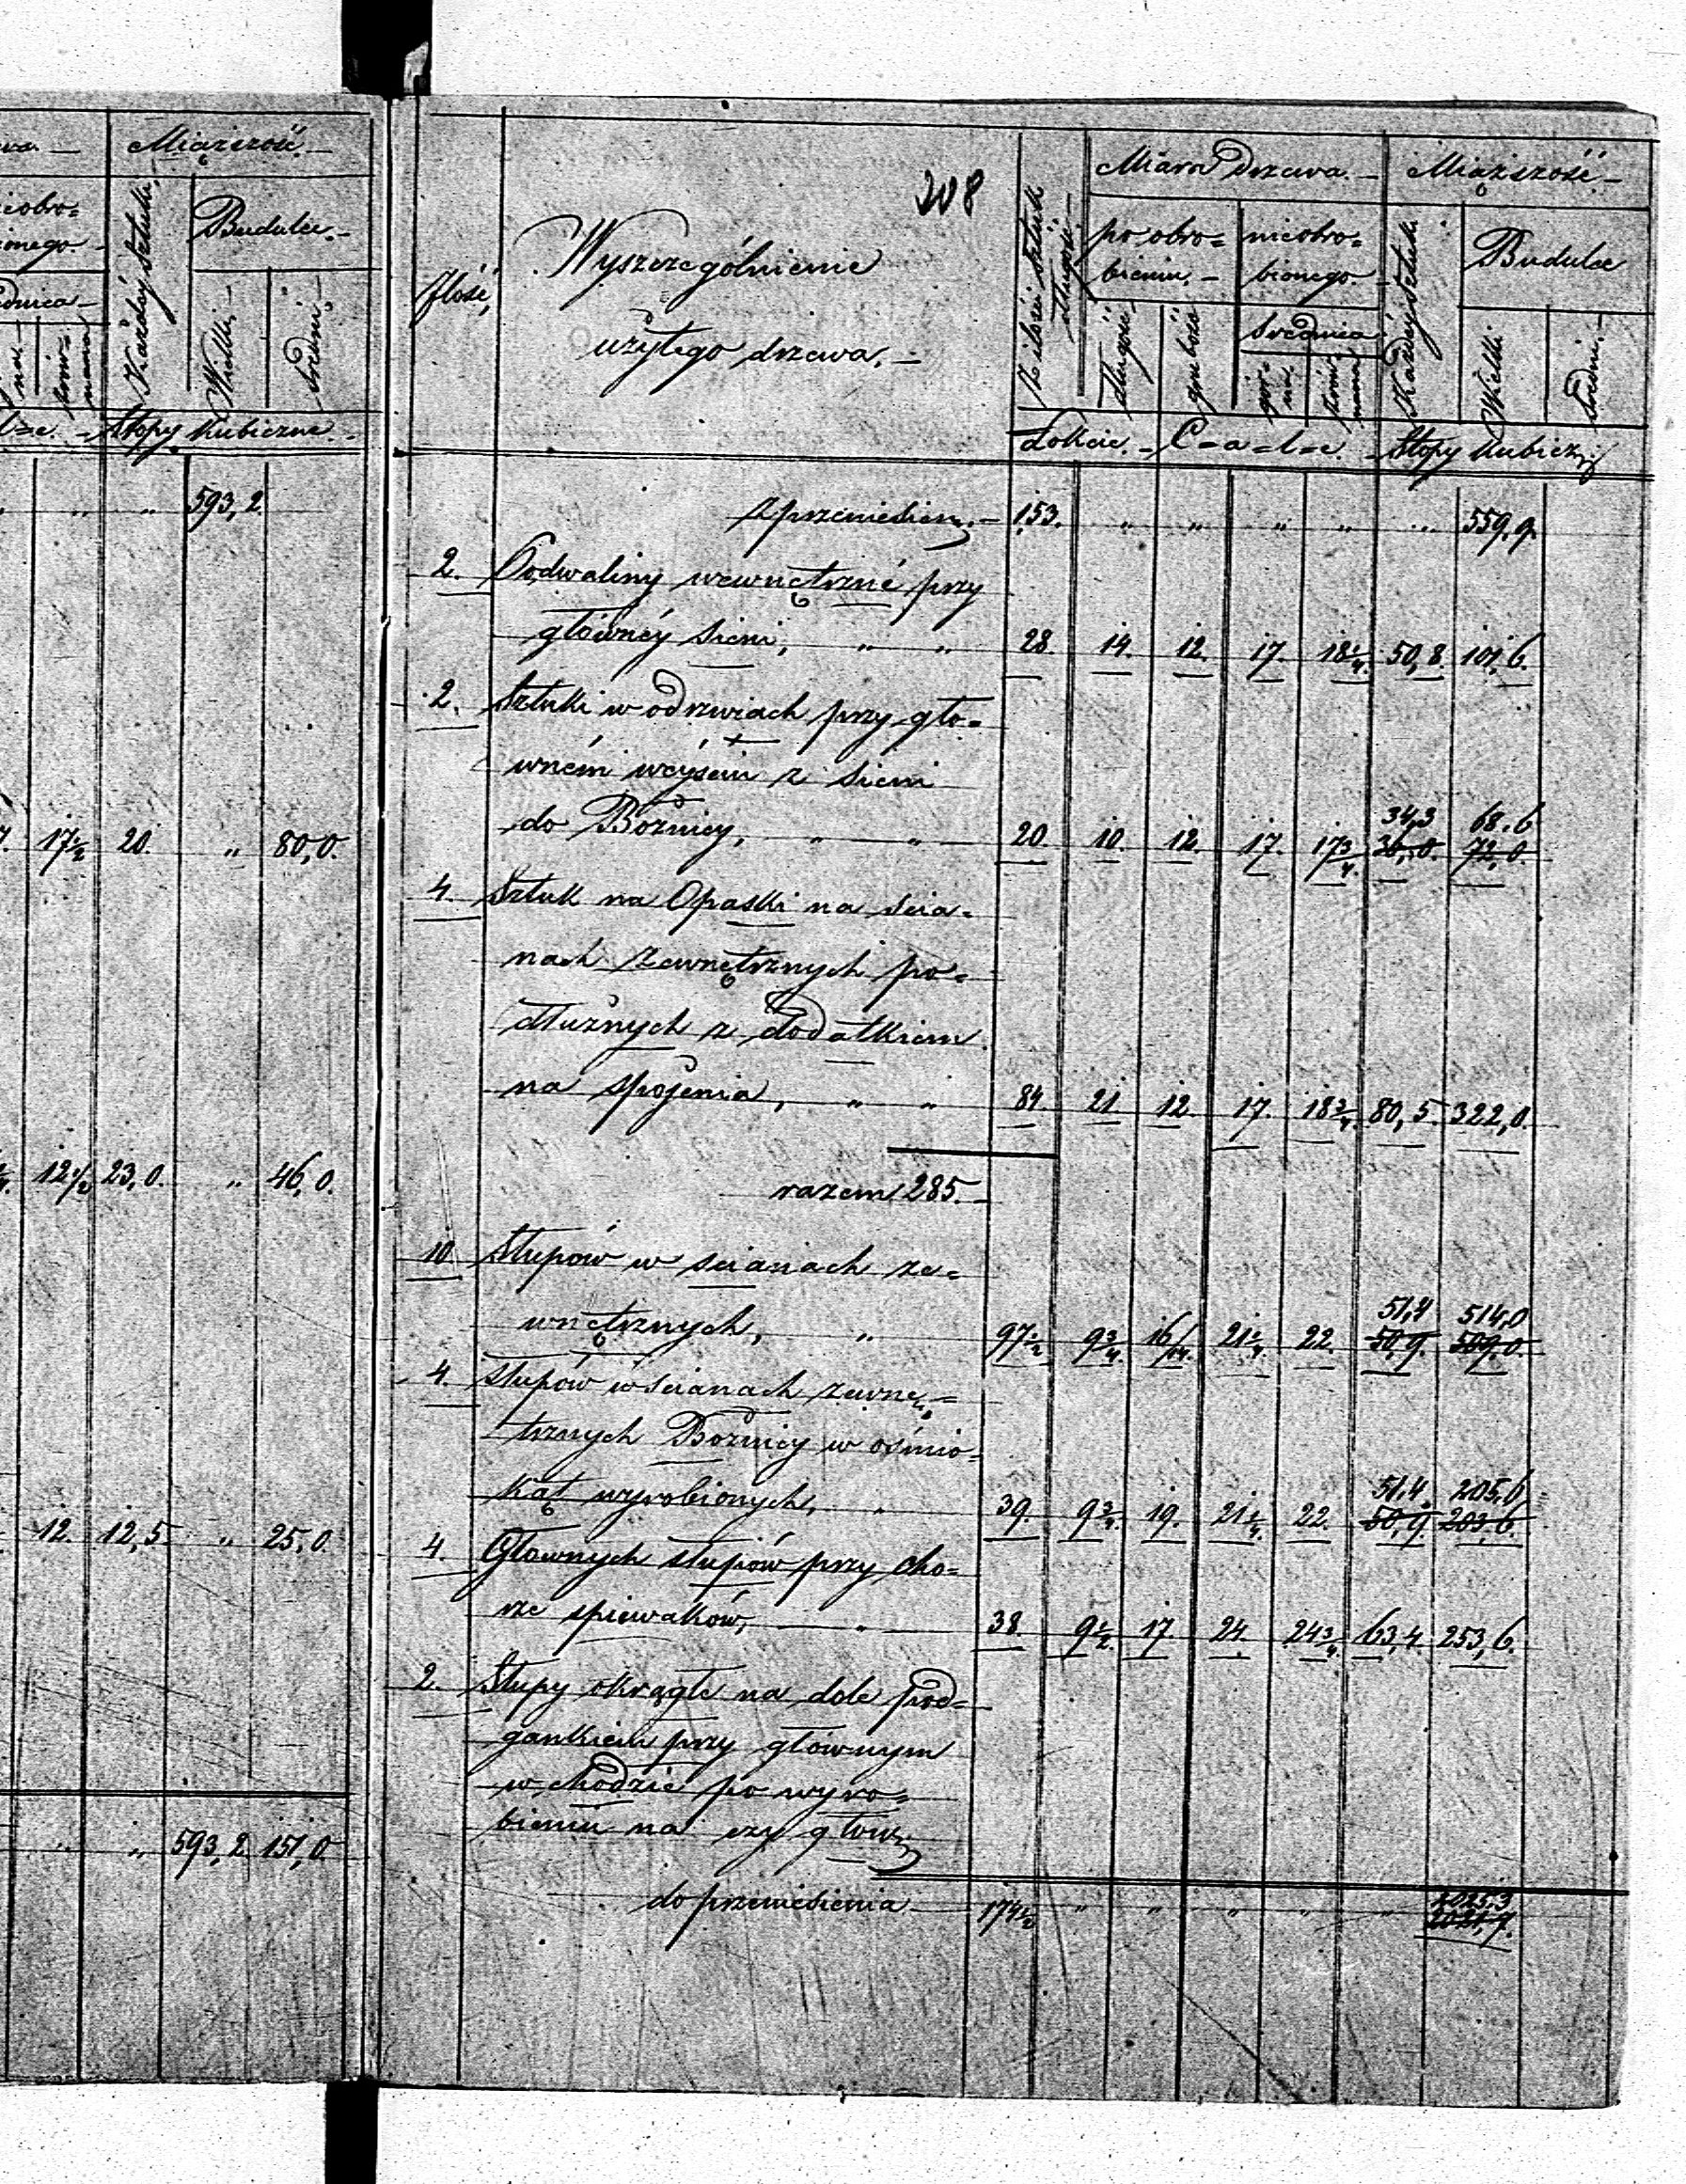 Miąższość.
Budulec.
Każdéy sztuki
Wielki.
średni.
Stopy kubiczne.
" " 593,2.
17½ 20. " 80,0.
12½ 23,0. " 46,0.
12. 12,5. " 25,0.
" " 593,2 151,0
208
Ilość,
Wyszczególnienie
użytego drzewa.
Z ilości sztuk długość.
Miara drzewa.
Miąższość.
po obro=
bieniu.
nieobro=
bionego.
Budulec
długość
średnica
gór=
na.
Każdéy sztuki
Wielki
średni.
Łokcie. C=a=l=e. Stopy kubicz:
Z przeniesien: 153. " " " " " 559,9.
2. Podwaliny wewnętrzné przy
głównéy sieni, " " 28. 14. 12. 17. 18¼. 50,8. 101,6.
2. Sztuki w odrzwiach przy głó=
wném wéyściu z sieni
34,3 68,6
do Bożnicy, " " 20. 10. 12. 17. 17¾. 36,0. 72,0.
4. Sztuk na Opaski na ścia=
nach zewnętrznych po=
dłużnych z dodatkiem
na spojenia, " " 84. 21. 12. 17. 18¾. 80,5. 322,0.
razem 285.
10. Słupów w scianach ze=
51,4 514,0
wnętrznych, " 97½ 9¾. 16/14. 21¼ 22. 50,9. 509,0.
4. słupów w ścianach zewnę=
trznych Bożnicy w ośmio=
51,4 205,6
kąt wyrobionych, " 39. 9¾. 19. 21¼. 22. 50,9. 203,6.
4. Głownych słupów przy cho=
rze spiewaków, " 38. 9½. 17. 24. 24¾. 63,4. 253,6.
2. Słupy okrągłe na dole pod
gankiem przy głównym
wchodzie po wyro=
bieniu na czy głow:
2025,3
do przeniesienia 174½ " " " " " 2021,7.